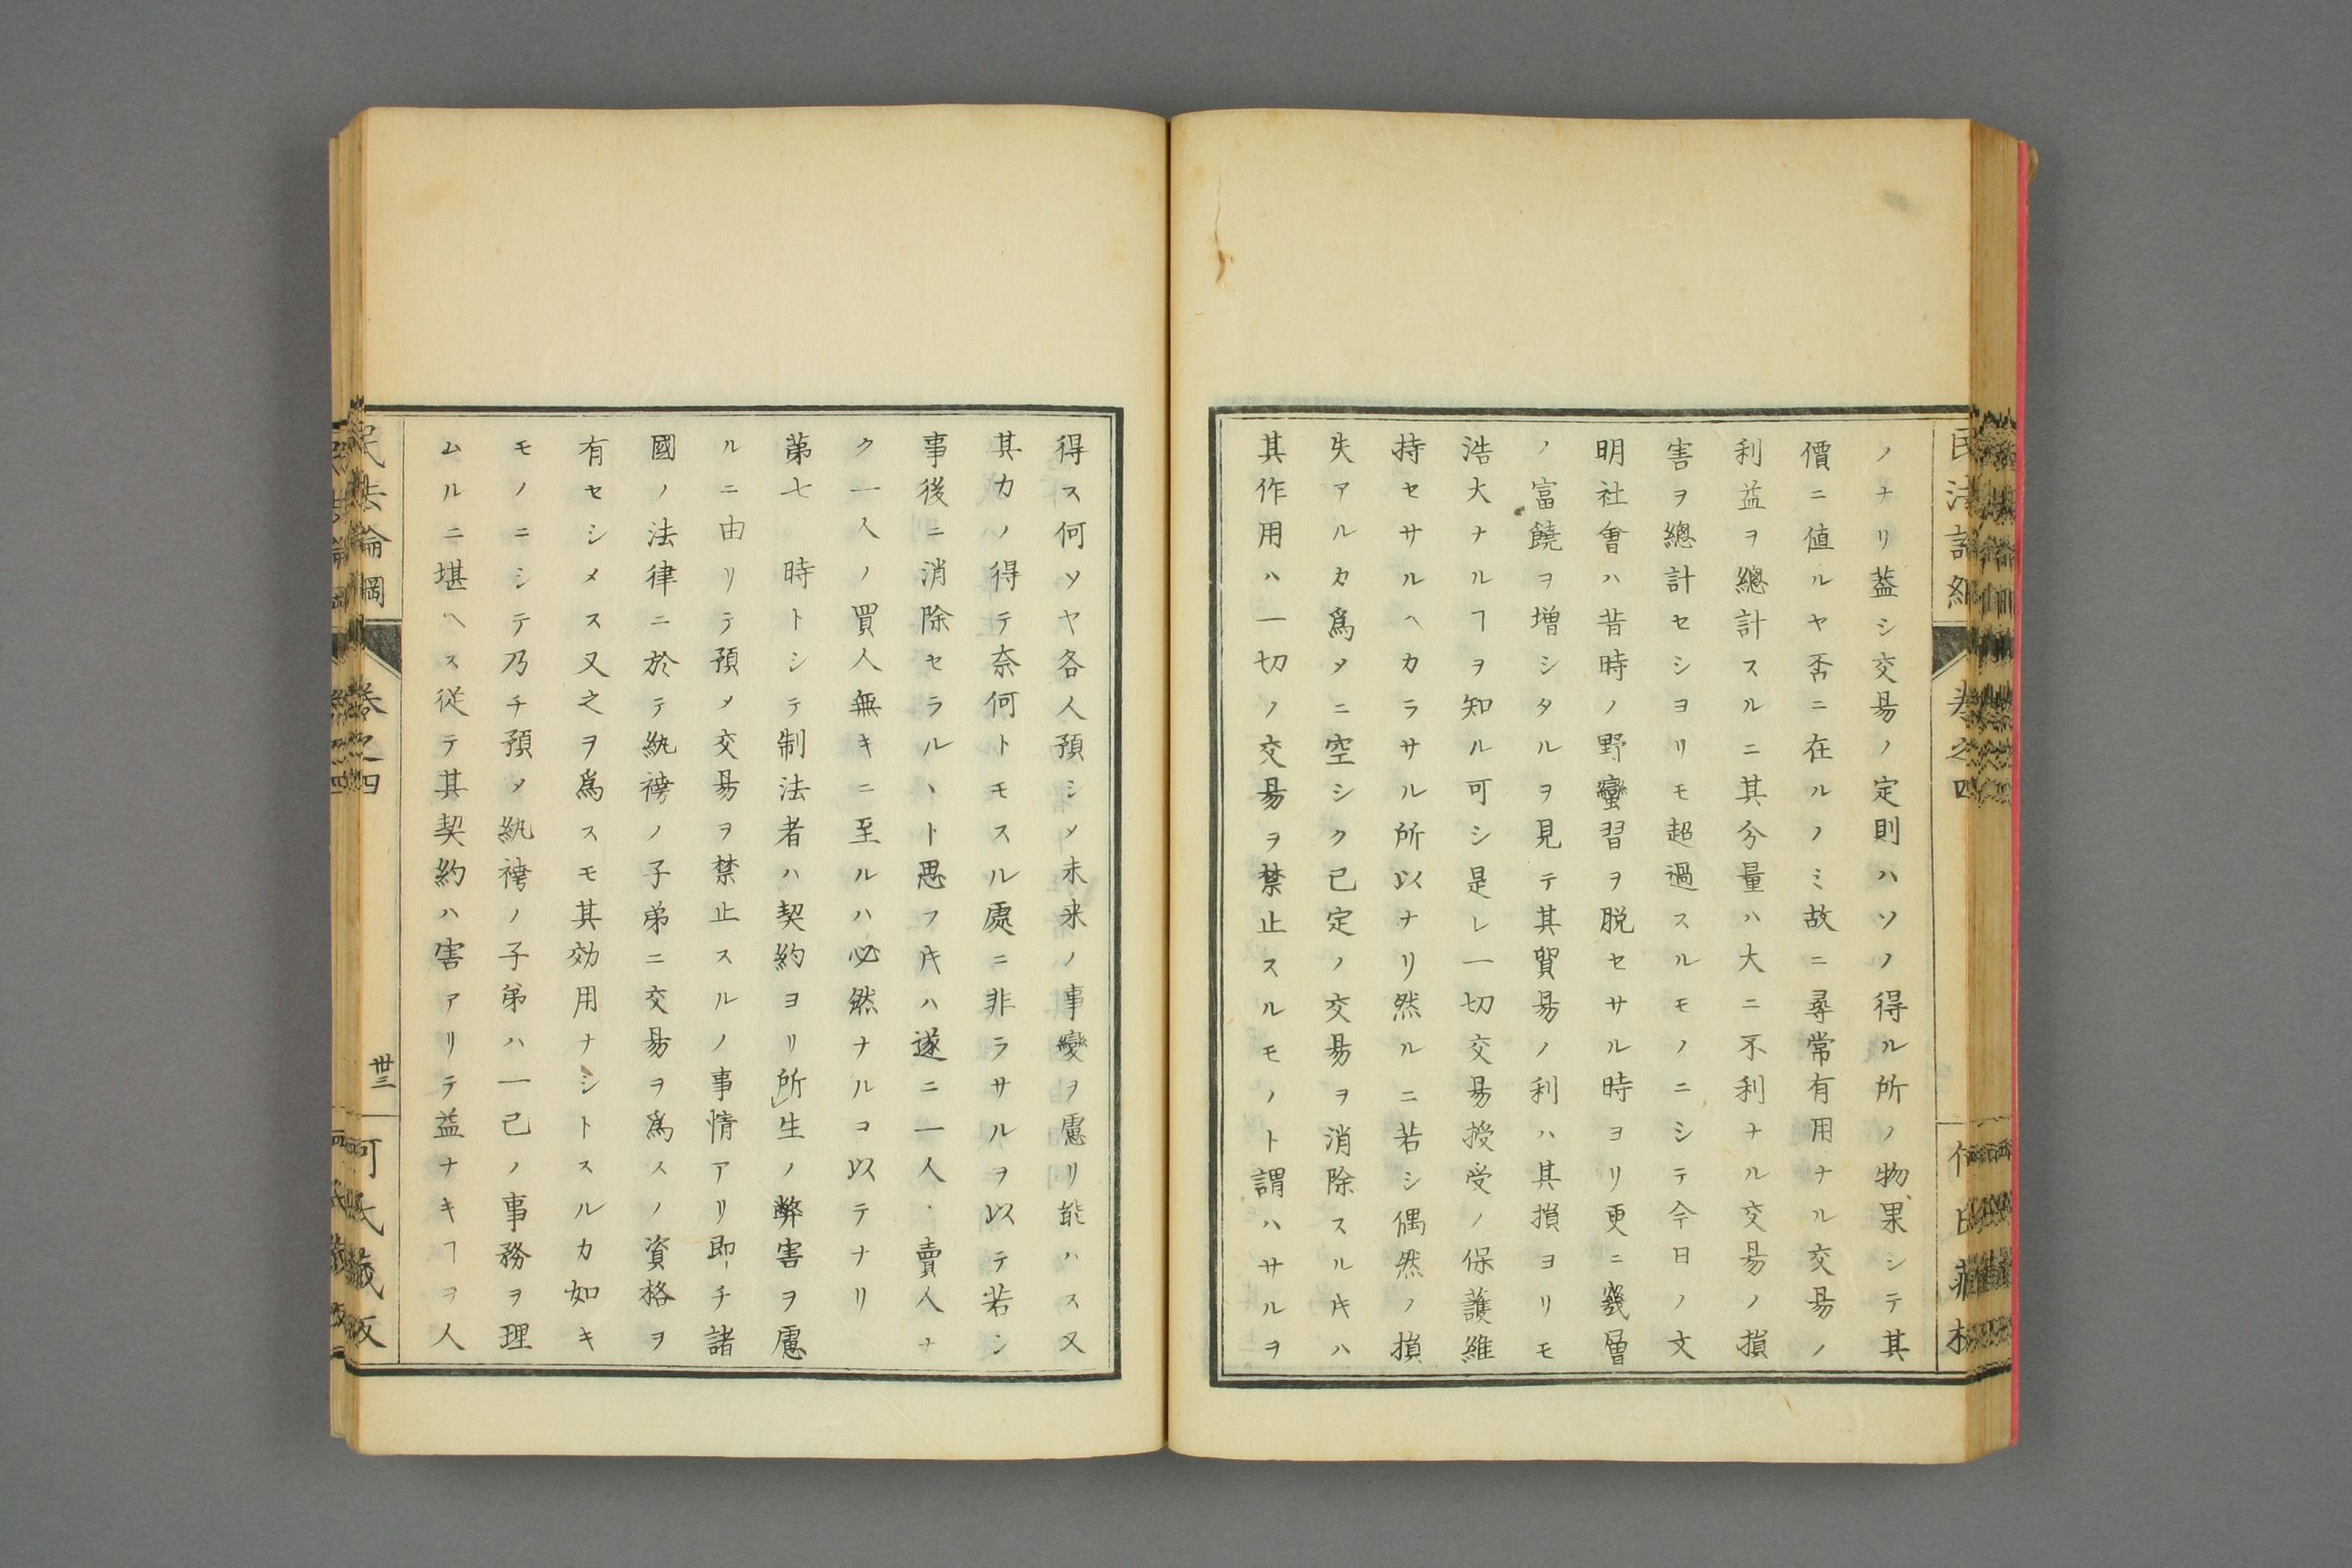 ノナリ葢シ交昜ノ定則ハソノ得ル所ノ物果シテ其
價ニ値ルヤ否ニ在ルノミ故ニ尋常有用ナル交昜ノ
利益ヲ總計スルニ其分量ハ大ニ不利ナル交昜ノ損
害ヲ總計セシヨリモ超過スルモノニシテ今日ノ文
明社會ハ昔時ノ野蠻習ヲ脱セサル時ヨリ更ニ幾層
ノ富饒ヲ増シタルヲ見テ其貿昜ノ利ハ其損ヨリモ
浩大ナルヿヲ知ル可シ是レ一切交昜授受ノ保護維
持セサルヘカラサル所以ナリ然ルニ若シ偶然ノ損
失アルカ爲メニ空シク已定ノ交昜ヲ消除スルキハ
其作用ハ一切ノ交昜ヲ禁止スルモノト謂ハサルヲ
得ス何ソヤ各人預シメ未来ノ事變ヲ慮リ能ハス又
其力ノ得テ奈何トモスル處ニ非ラサルヲ以テ若シ
事後ニ消除セラルヽト思フキハ遂ニ一人ノ賣人ナ
ク一人ノ買人無キニ至ルハ必然ナルコ以テナリ
第七 時トシテ制法者ハ契約ヨリ所生ノ弊害ヲ慮
ルニ由リテ預メ交昜ヲ禁止スルノ事情アリ即チ諸
國ノ法律ニ於テ紈袴ノ子弟ニ交昜ヲ爲スノ資格ヲ
有セシメス又之ヲ爲スモ其効用ナシトスルカ如キ
モノニシテ乃チ預メ紈袴ノ子弟ハ一己ノ事務ヲ理
ムルニ堪ヘス従テ其契約ハ害アリテ益ナキヿヲ人
民法論綱 卷之四 卅三 何氏藏版